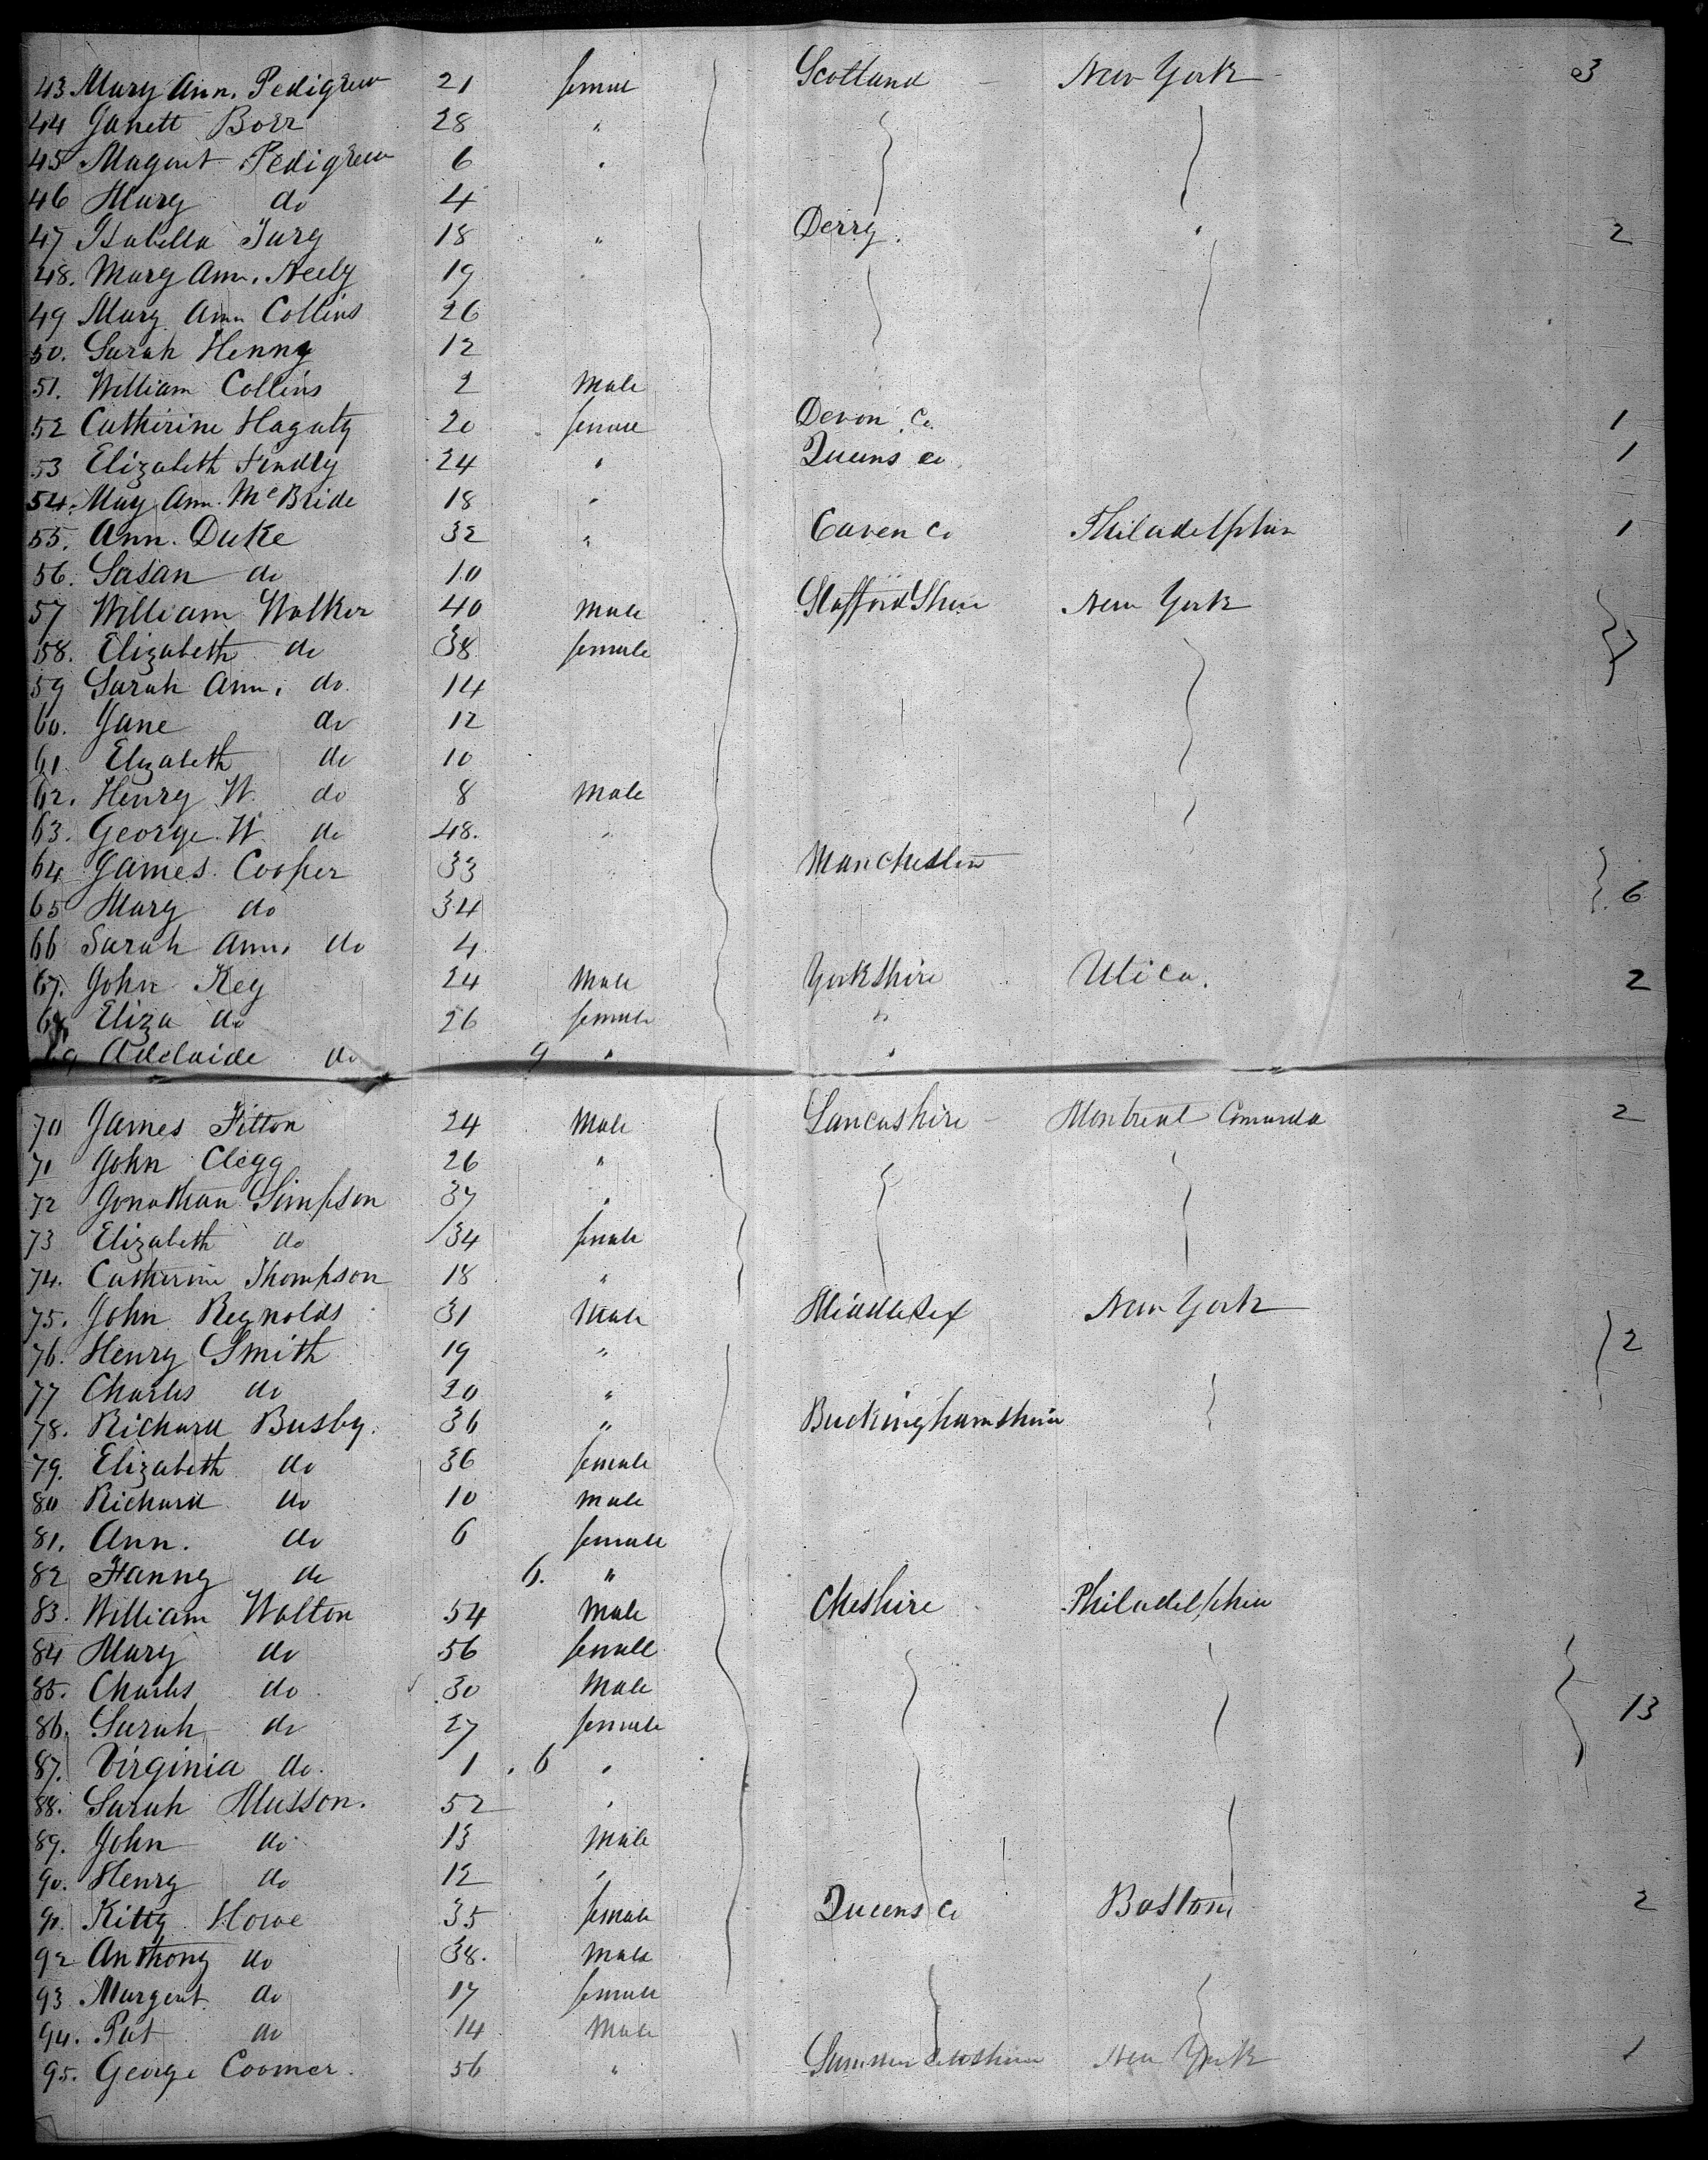 43 Mary Ann. Pedigrew 21 female Scotland New York 3
44 Janett Borr 28 "
45 Magaret Pedigrew 6 "
46 Mary do 4
47 Isabella 18 " Derry. " 2
48. Mary Ann. Neely 19
49 Mary Ann Collins 26
50. Sarah Henny 12
51. William Collins 2 Male
52 Catherine Hagaty 20 female Devon Co. 1
53 Elizabeth Findly 24 " Queens Co. 1
54. May Ann. McBride 18 "
55. Ann. Duke 32 " Caven Co Philadelphia 1
56. Susan do 10
57 William Walker 40 Male StaffordShire New York 7
58. Elizabeth do 38 female
59 Sarah Ann. do 14
60. Jane do 12
61 Elizabeth do 10
62. Henry W. do 8 Male
63. George W. do 48.
64 James Cooper 33 Manchester
65 Mary do 34 6
66 Sarah Ann. do 4
67. John Key 24 Male YorkShire Utica. 2
68 Eliza do 26 female "
69 Adelaide do 9 " "
70 James Fitton 24 Male Lancashire Montreal Canada 2
71 John Clegg 26 "
72 Jonathan Simpson 37 "
73 Elizabeth do 34 female
74. Catherine Thompson 18 "
75. John Reynolds 31 Male Middlesex New York
76. Henry Smith 19 " 2
77 Charles do 20 "
78. Richard Busby. 36 " Buckinghamshire
79. Elizabeth do 36 female
80 Richard do 10 male
81. Ann. do 6 female
82 Fanny do 6. "
83. William Walton 54 Male Cheshire Philadelphia
84 Mary do 56 female
85. Charles do 30 Male 13
86. Sarah do 27 female
87. Virginia do. 1 . 6 "
88. Sarah Musson. 52 "
89. John do 13 Male
90. Henry do 12 "
91. Kitty Howe 35 female Queens Co Boston 2
92 Anthony do 38. Male
93 Margeret do 17 female
94. Pat do 14 Male
95. George Coomer. 56 " New York 1